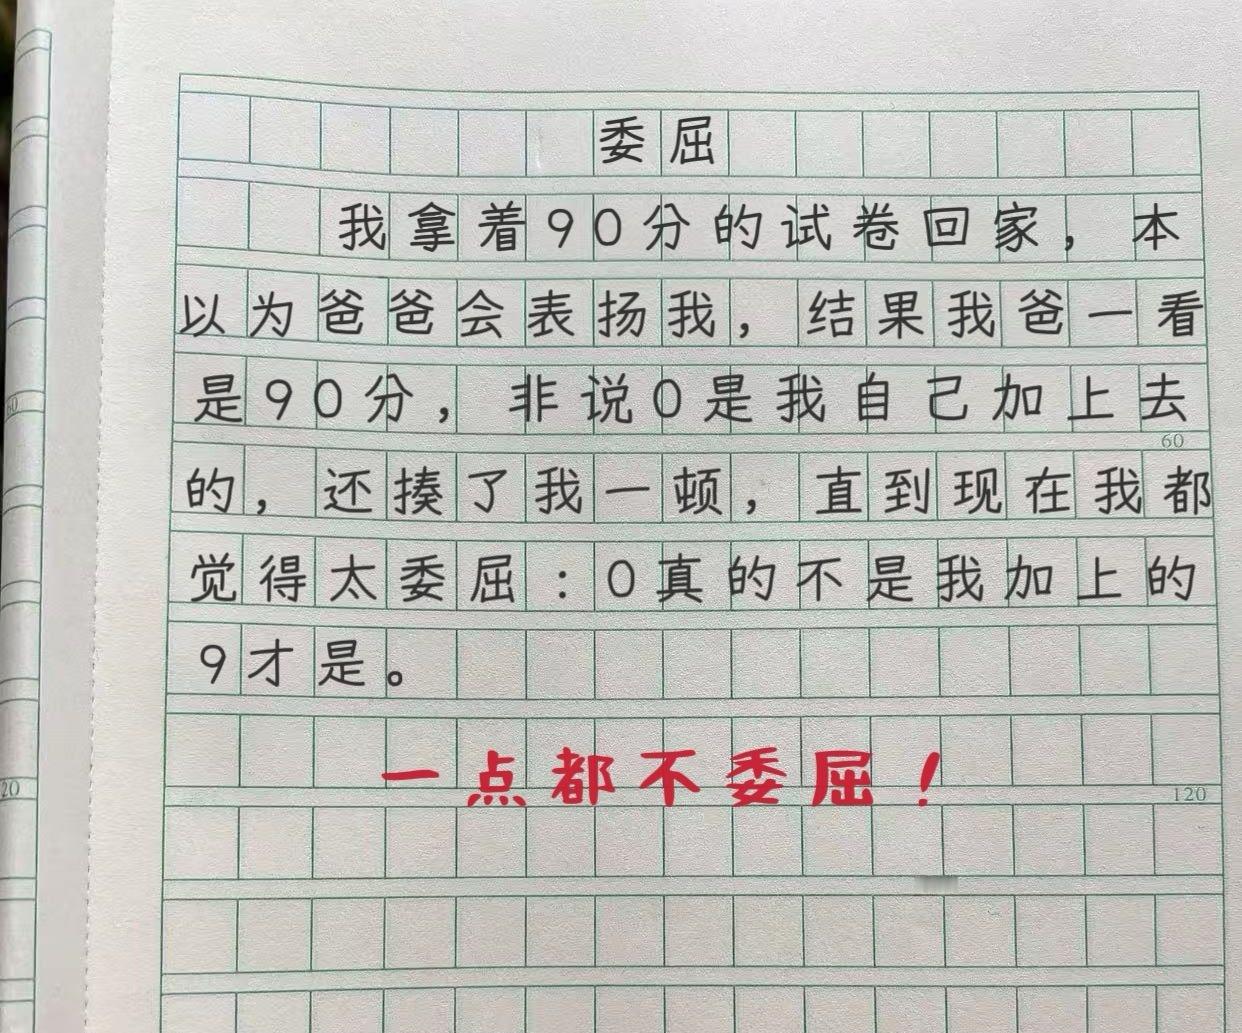 委屈
我拿着90分的试卷回家，本
以为爸爸会表扬我，结果我爸一看
是90分，非说0是我自己加上去
的，还揍了我一顿，直到现在我都
觉得太委屈：0真的不是我加上的
9才是。
一点都不委屈！
60
120
20